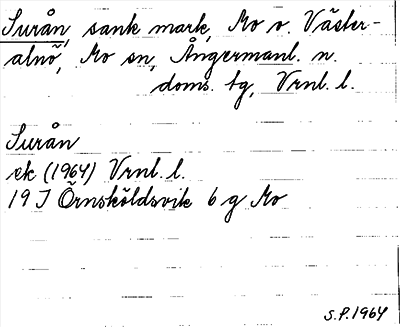 Surån, sank mark, Mo o. Väster-
alnö, Mo sn, Ångermanl. n.
doms. tg, Vrnl. l.
Surån
ek (1964) Vrnl. l.
19 J Örnsköldsvik 6 g Mo
S.P. 1964